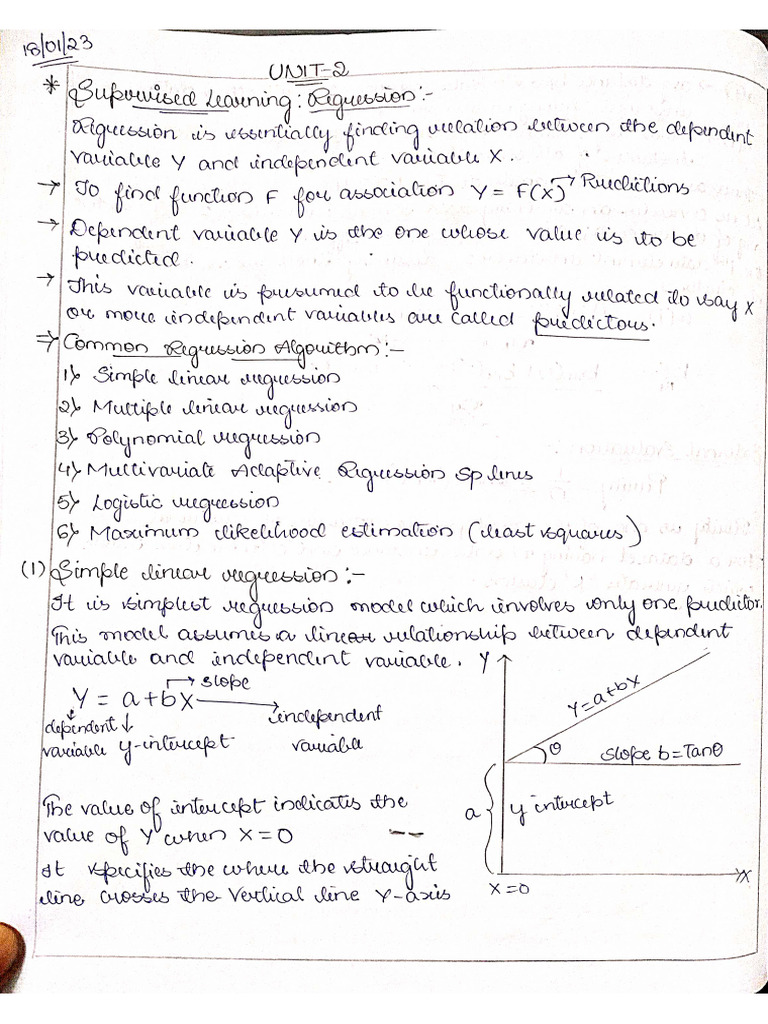 18/01/23
UNIT-2
* Supervised Learning: Regression:-
Regression is essentially finding relation between the dependent
variable Y and independent variable X.
→ To find function F for association Y = F(X) → Predictions
→ Dependent variable Y is the one whose value is to be
predicted.
→ This variable is presumed to be functionally related to say X
or more independent variables are called predictors.
⇒ Common Regression Algorithm:-
1) Simple linear regression
2) Multiple linear regression
3) Polynomial regression
4) Multivariate Adaptive Regression Splines
5) Logistic regression
6) Maximum likelihood estimation (least squares)
(1) Simple linear regression:-
It is simplest regression model which involves only one predictor.
This model assumes a linear relationship between dependent
variable and independent variable.
→ slope
Y = a+bX
dependent variable
y-intercept
independent variable
The value of intercept indicates the
value of Y when X=0
It specifies the where the straight
line crosses the vertical line Y-axis
Y
Y=a+bX
θ
slope b=Tanθ
a
y intercept
X=0
X